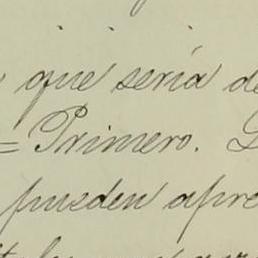 que seria de
= Primero. L
pueden apre